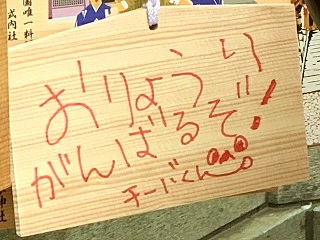 国唯一料
式内社
おりょうり
がんばるぞ!
チーバくん
神社